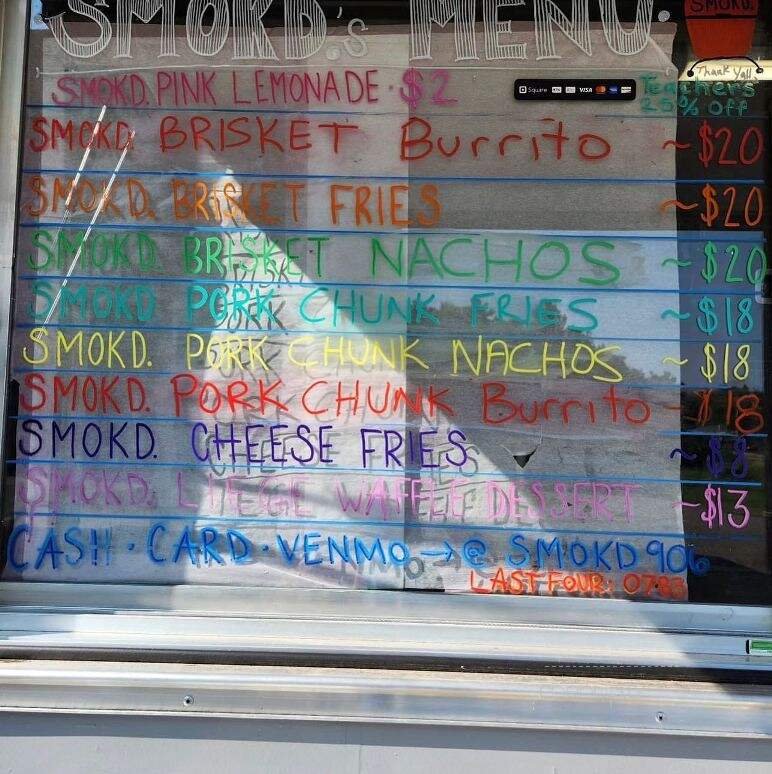 SMOKD.'s MENU.
SMOKD.
Thank Yall!
SMOKD. PINK LEMONADE · $2
Square VISA
Teachers
25% Off
SMOKD. BRISKET Burrito ~ $20
SMOKD. BRISKET FRIES ~ $20
SMOKD. BRISKET NACHOS ~ $20
SMOKD. PORK CHUNK FRIES ~ $18
SMOKD. PORK CHUNK NACHOS ~ $18
SMOKD. PORK CHUNK Burrito ~ $18
SMOKD. CHEESE FRIES ~ $8
SMOKD. LIEGE WAFFLE DESSERT ~ $13
CASH · CARD · VENMO → @ SMOKD906
LAST FOUR: